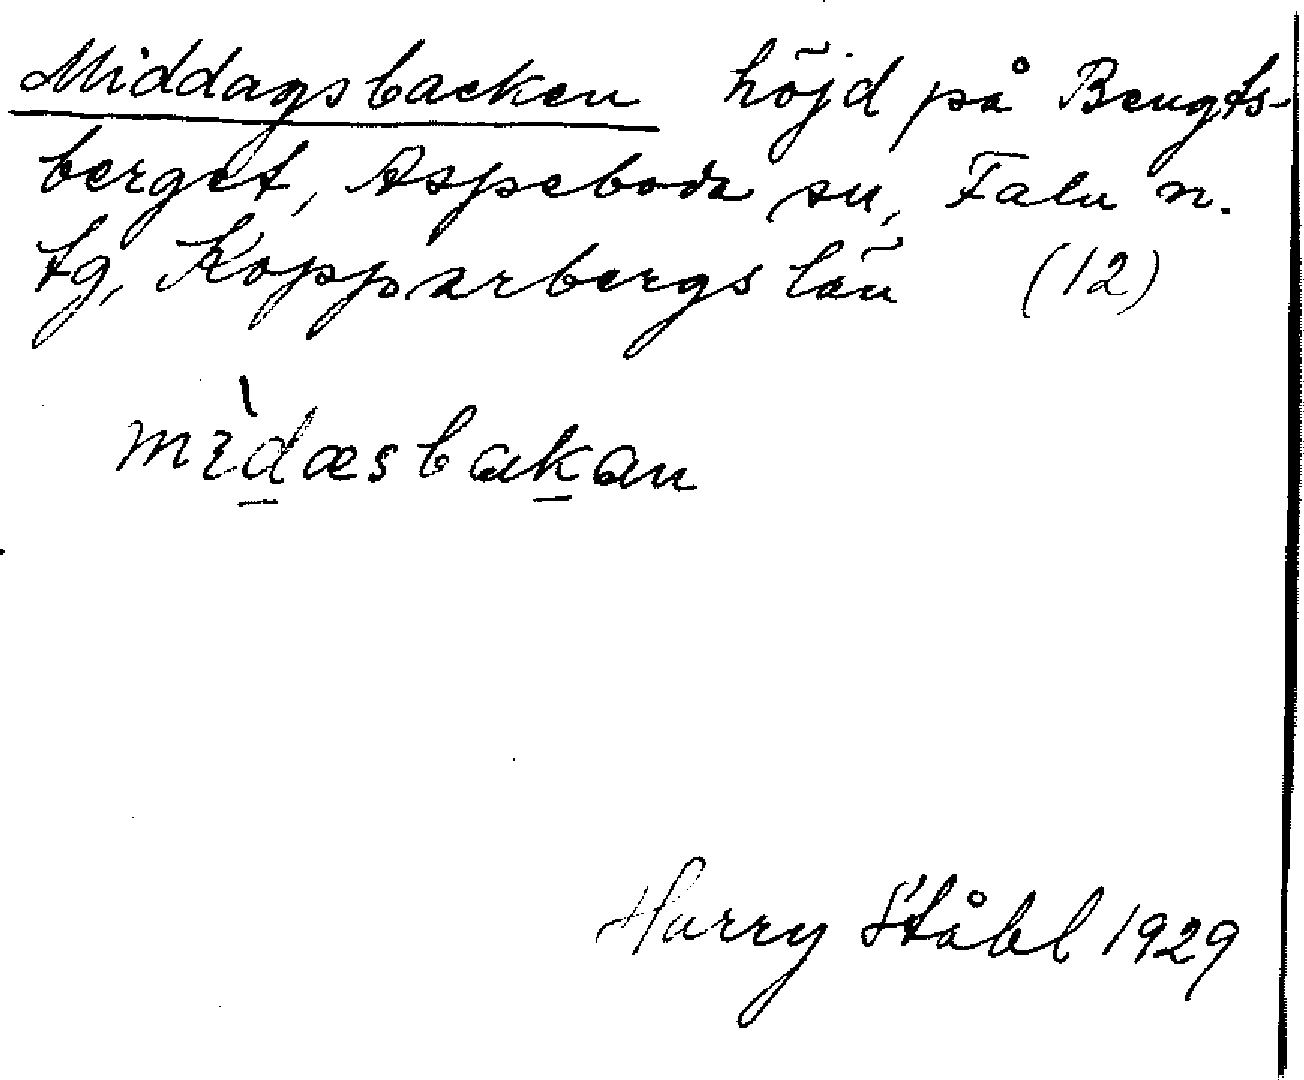 Middagsbacken höjd på Bengts-
berget, Aspeboda sn, Falu n.
tg, Kopparbergs län (12)
mìd̲æsbak̲an
Harry Ståhl 1929